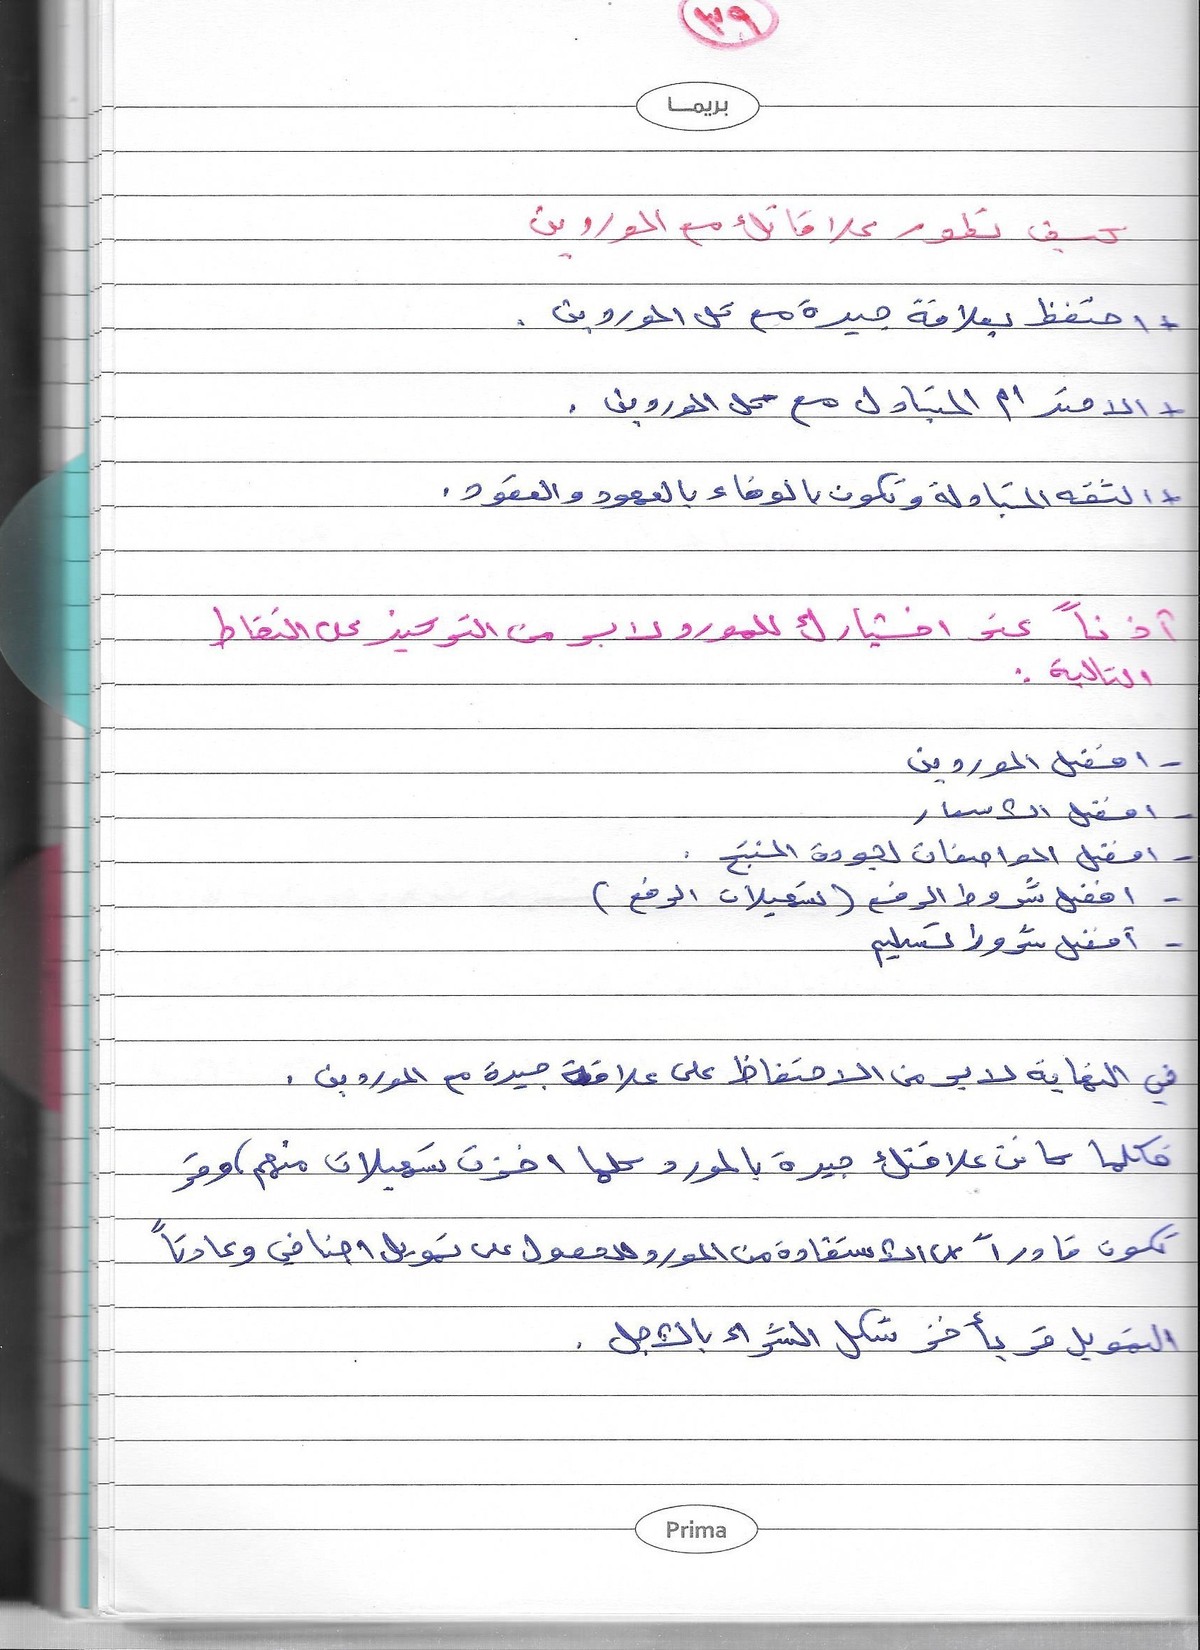 ٣٩
بريمـا
كيف تطور علاقاتك مع الموردين
+ احتفظ بعلاقة جيدة مع كل الموردين .
+ الاحترام المتبادل مع كل الموردين .
+ الثقه المتبادلة وتكون بالوفاء بالعهود والعقود .
آذناً عند اختيارك للمورد لابد من التركيز على النقاط
التالية :
- افضل الموردين
- افضل الأسعار
- افضل المواصفات لجودة المنتج .
- افضل شروط الدفع ( تسهيلات الدفع )
- أفضل شروط تسليم
في النهاية لابد من الاحتفاظ على علاقة جيدة مع الموردين .
فكلما كانت علاقتك جيدة بالمورد كلما اخذت تسهيلات منهم ، وقد
تكون قادراً على الأستفادة من المورد للحصول على تمويل اضافي وعادتاً
التمويل قد يأخذ شكل الشراء بالأجل .
Prima